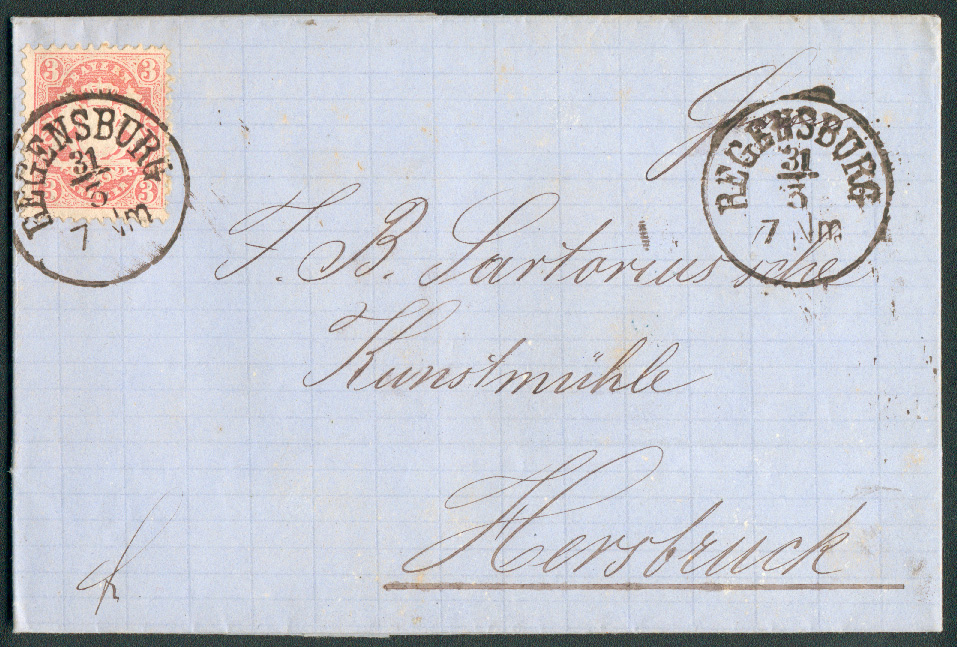 3 BAYERN 3
REGENSBURG
31
5
7 Nm
3 3
REGENSBURG
31
5
7 Nm
J. B. Sartorius'sche
Kunstmühle
Hersbruck